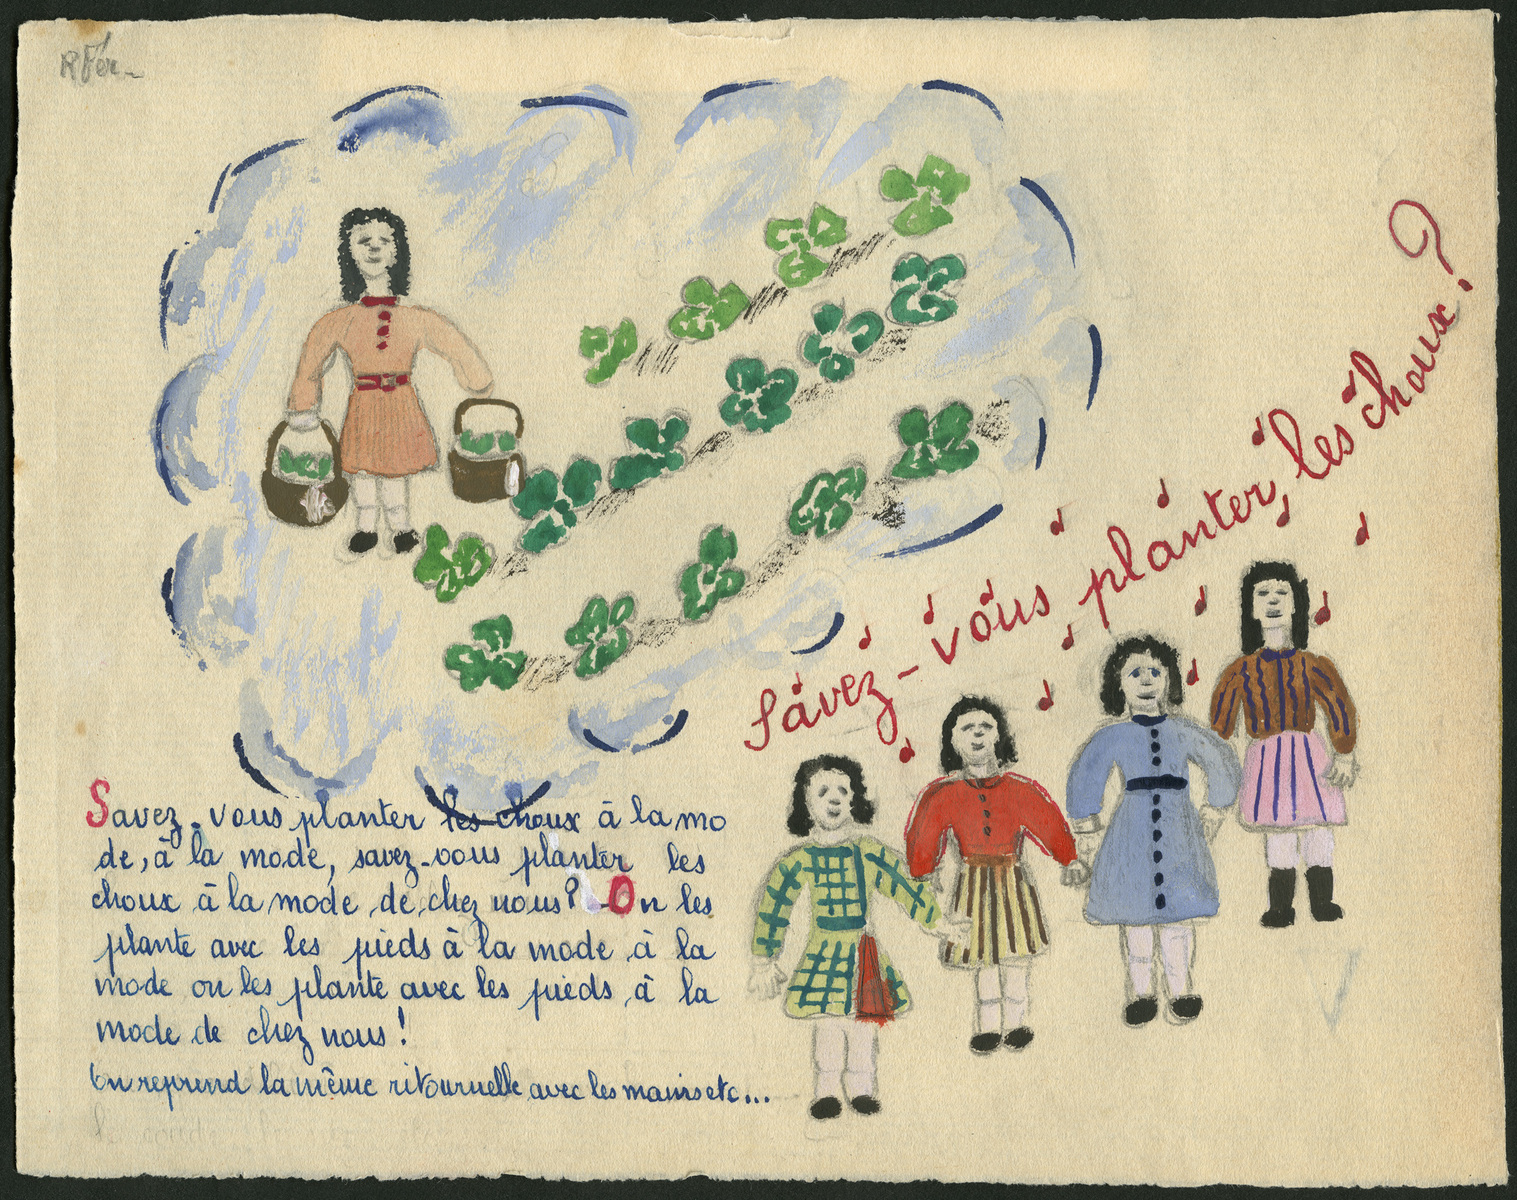 Savez-vous planter, les choux?
Savez-vous planter les choux à la mo
de, à la mode, savez-vous planter les
choux à la mode de chez nous? On les
plante avec les pieds à la mode à la
mode on les plante avec les pieds à la
mode de chez nous!
On reprend la même ritournelle avec les mains etc...